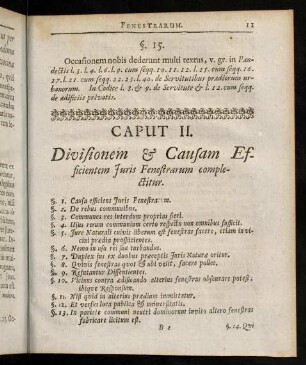 FENESTRARUM. 11
§. 15.
Occasionem nobis dederunt multi textus, v. gr. in Pan-
dectis l. 3. l. 4. l. 6. l. 9. cum seqq. 10. 11. 12. l. 15. cum seqq. 16.
17. l. 21. cum seqq. 22. 23. l. 40. de Servitutibus prædiorum ur-
banorum. In Codice l. 8. & 9. de Servitute & l. 12. cum seqq.
de ædificiis privatis.
CAPUT II.
Divisionem & Causam Ef-
ficientem Juris Fenestrarum comple-
ctitur.
§. 1. Causa efficiens Juris Fenestrarum.
§. 2. De rebus communibus.
§. 3. Communes res interdum proprias fieri.
§. 4. Usus rerum communium certo respectu non omnibus sufficit.
§. 5. Jure Naturali cuivis liberum est fenestras facere, etiam in vi-
cini prædia prospicientes.
§. 6. Nemo in usu rei suæ turbandus.
§. 7. Duplex jus ex duobus præceptis Juris Naturæ oritur.
§. 8. Quivis fenestras quot & ubi velit, facere potest.
§. 9. Refutantur Dissentientes.
§. 10. Vicinus contra ædificando alterius fenestras obscurare potest,
ibique Responsum.
§. 11. Nisi quid in alterius prædium immittatur.
§. 12. Et verset loca publica & universitatis.
§. 13. In pariete communi neutri dominorum invito altero fenestras
fabricare licitum est.
B 2 §. 14. Qui